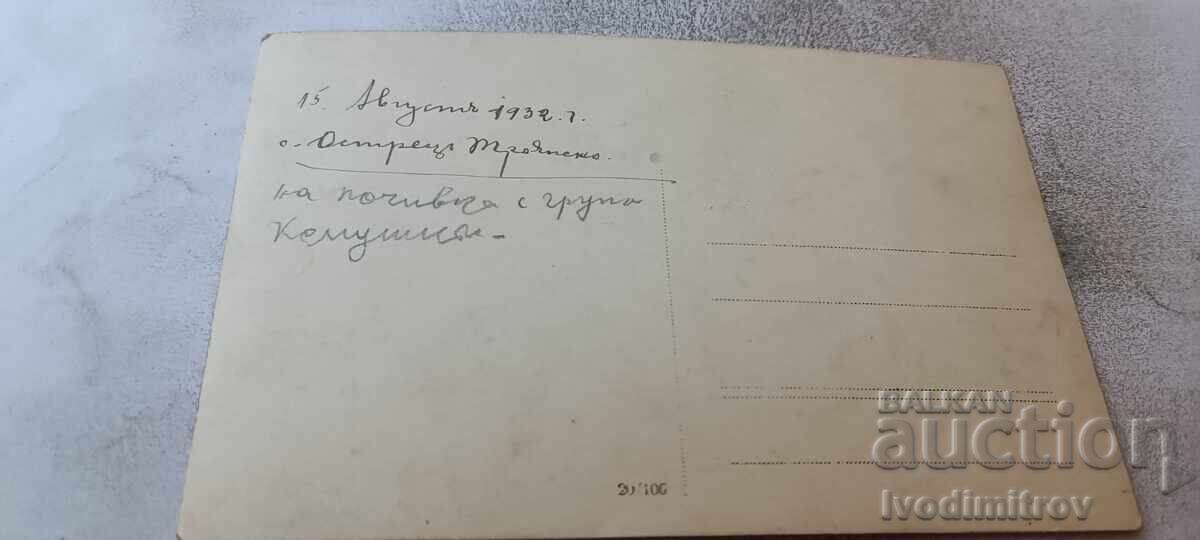 15. Августъ 1932.г.
о. Острецъ Троянско.
на почивка с група
20/100
BALKAN
auction
Ivodimitrov